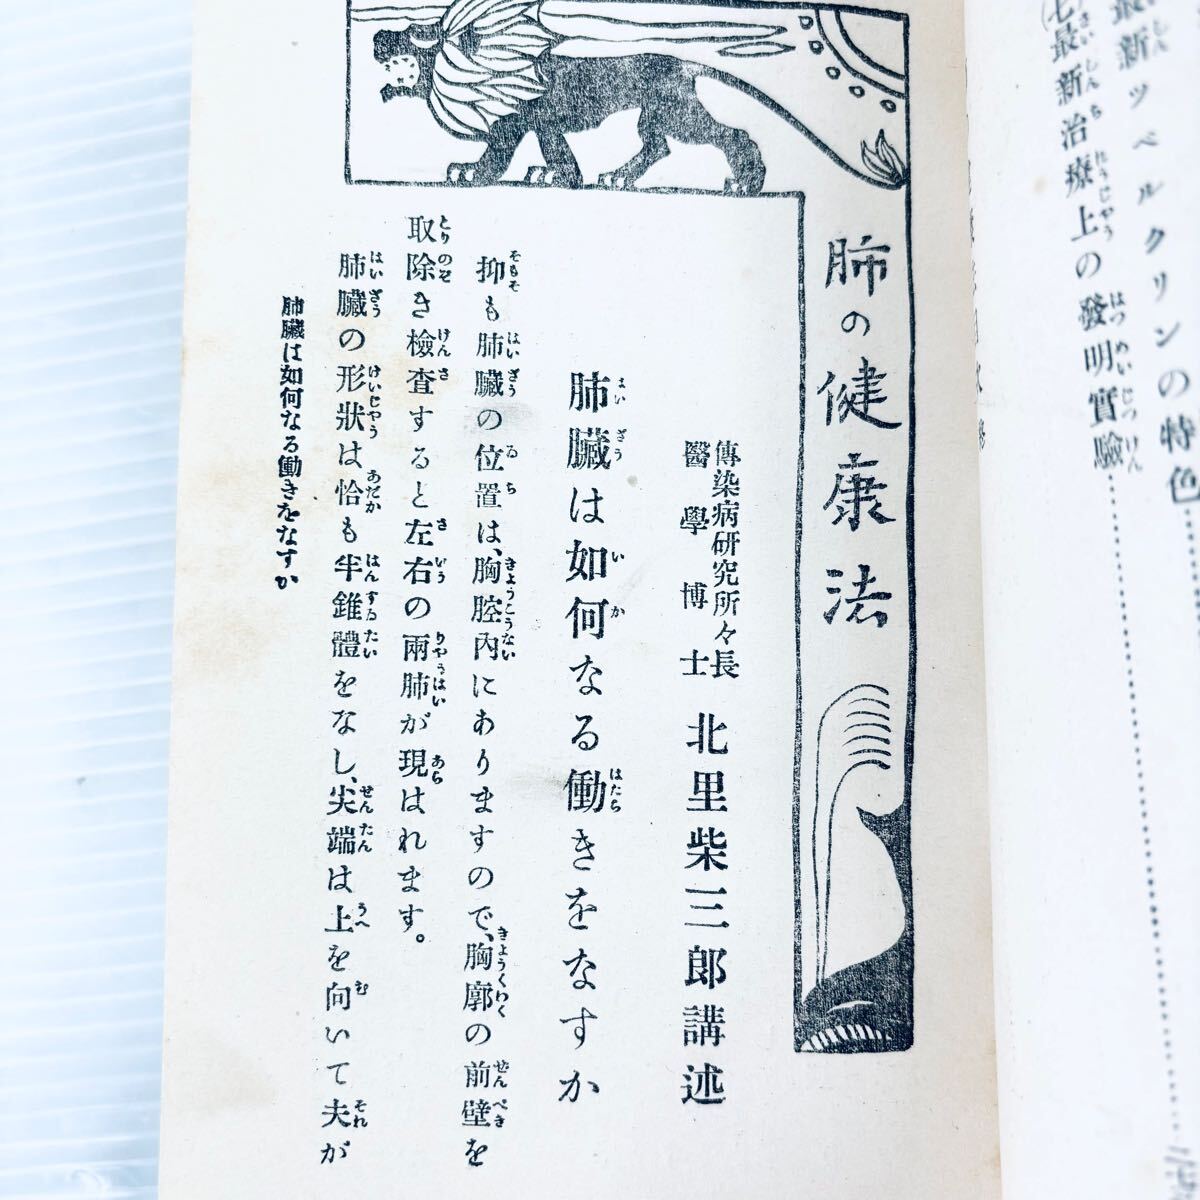 最新ツベルクリンの特色
(七)最新治療上の發明實驗
肺の健康法
傳染病研究所々長
醫學博士
北里柴三郎講述
肺臟は如何なる働きをなすか
抑も肺臟の位置は、胸腔內にありますので、胸廓の前壁を
取除き檢査すると左右の兩肺が現はれます。
肺臟の形狀は恰も半錐體をなし、尖端は上を向いて夫が
肺臟は如何なる働きをなすか